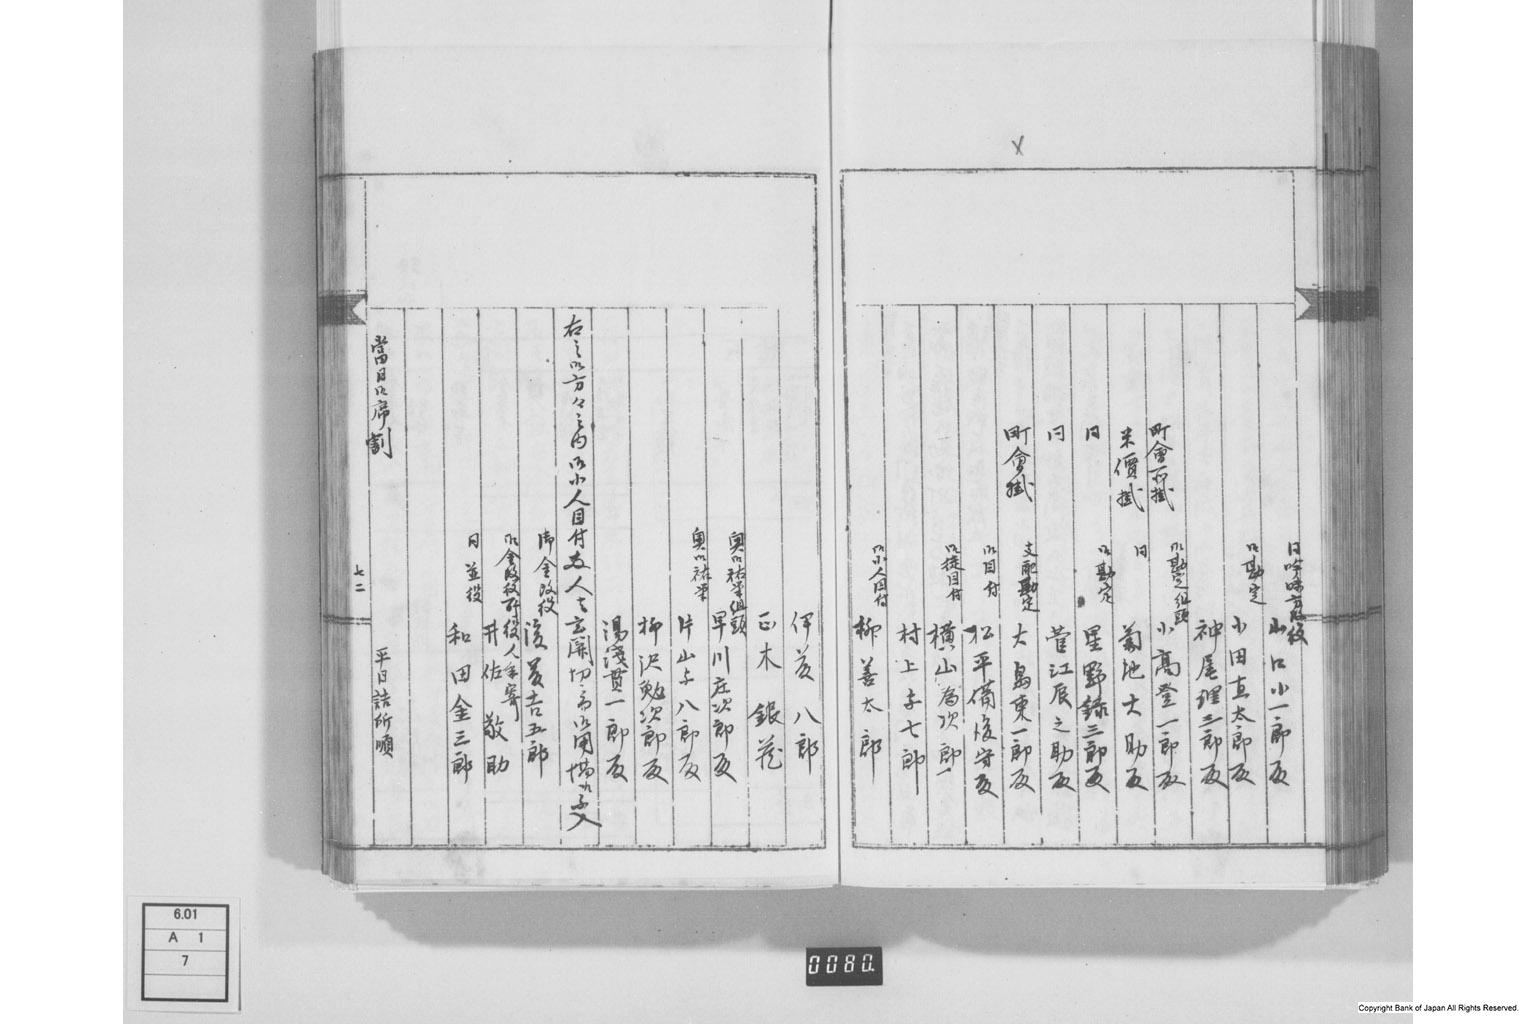 同吟味方改役
山口小一郎殿
御勘定
小田直太郎殿
神尾理三郎殿
町會所掛
御勘定組頭
小高登一郎殿
米價掛
同
菊地大助殿
同
御勘定
星野錄三郎殿
同
菅江辰之助殿
町會掛
支配勘定
大島東一郎殿
御目付
松平備後守殿
御徒目付
横山為次郎
村上与七郎
御小人目付
柳善太郎
伊󠄁奈八郎
正木銀藏
奥御祐筆組頭
早川庄次郎殿
奥御祐筆
片山与八郎殿
柳沢勉次郎殿
湯淺貫一郎殿
右之御方々之内御小人目付両人者玄関切
御金改役
後藤吉五郎
御金改役所役人年寄
井佐敬助
同並役
和田金三郎
當日御席割
平日詰所順
七二
0080
6.01
A 1
7
Copyright Bank of Japan All Rights Reserved.